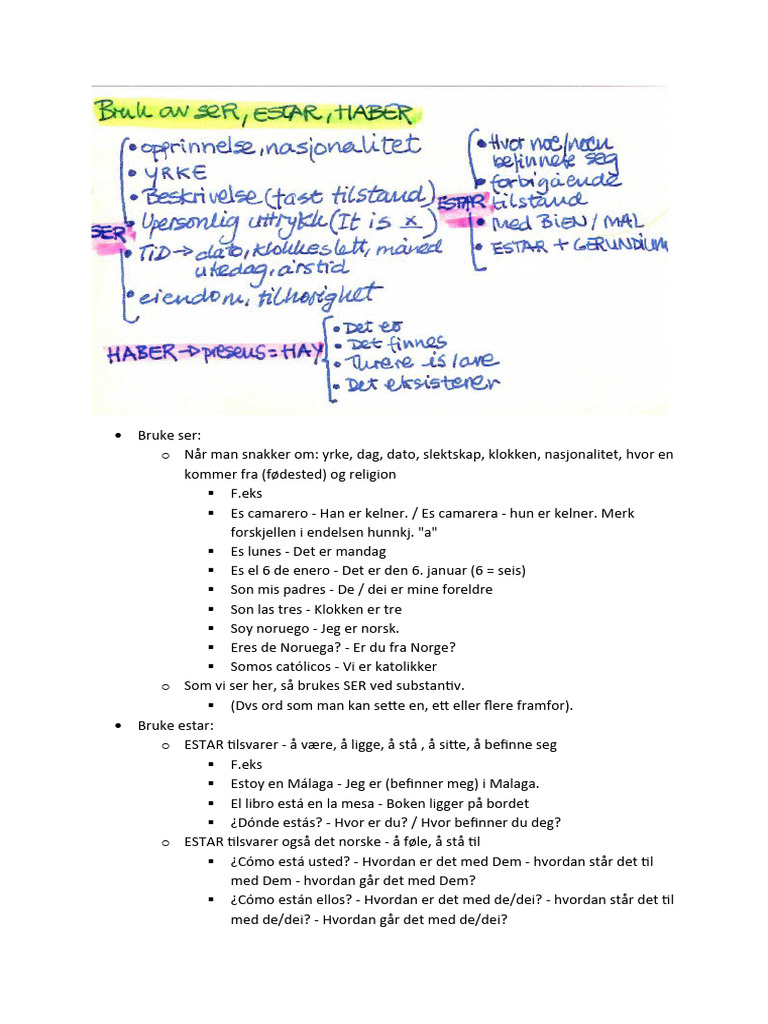 Bruk av SER, ESTAR, HABER
SER
• opprinnelse, nasjonalitet
• YRKE
• Beskrivelse (fast tilstand)
• Upersonlig uttrykk (It is x)
• TiD → dato, klokkeslett, måned
ukedag, årstid
• eiendom, tilhørighet
ESTAR
• Hvor noe/noen
befinner seg
• forbigående
tilstand
• med BIEN / MAL
• ESTAR + GERUNDIUM
HABER → presens = HAY
• Det er
• Det finnes
• There is / are
• Det eksisterer
• Bruke ser:
o Når man snakker om: yrke, dag, dato, slektskap, klokken, nasjonalitet, hvor en
kommer fra (fødested) og religion
▪ F.eks
▪ Es camarero - Han er kelner. / Es camarera - hun er kelner. Merk
forskjellen i endelsen hunnkj. "a"
▪ Es lunes - Det er mandag
▪ Es el 6 de enero - Det er den 6. januar (6 = seis)
▪ Son mis padres - De / dei er mine foreldre
▪ Son las tres - Klokken er tre
▪ Soy noruego - Jeg er norsk.
▪ Eres de Noruega? - Er du fra Norge?
▪ Somos católicos - Vi er katolikker
o Som vi ser her, så brukes SER ved substantiv.
▪ (Dvs ord som man kan sette en, ett eller flere framfor).
• Bruke estar:
o ESTAR tilsvarer - å være, å ligge, å stå , å sitte, å befinne seg
▪ F.eks
▪ Estoy en Málaga - Jeg er (befinner meg) i Malaga.
▪ El libro está en la mesa - Boken ligger på bordet
▪ ¿Dónde estás? - Hvor er du? / Hvor befinner du deg?
o ESTAR tilsvarer også det norske - å føle, å stå til
▪ ¿Cómo está usted? - Hvordan er det med Dem - hvordan står det til
med Dem - hvordan går det med Dem?
▪ ¿Cómo están ellos? - Hvordan er det med de/dei? - hvordan står det til
med de/dei? - Hvordan går det med de/dei?